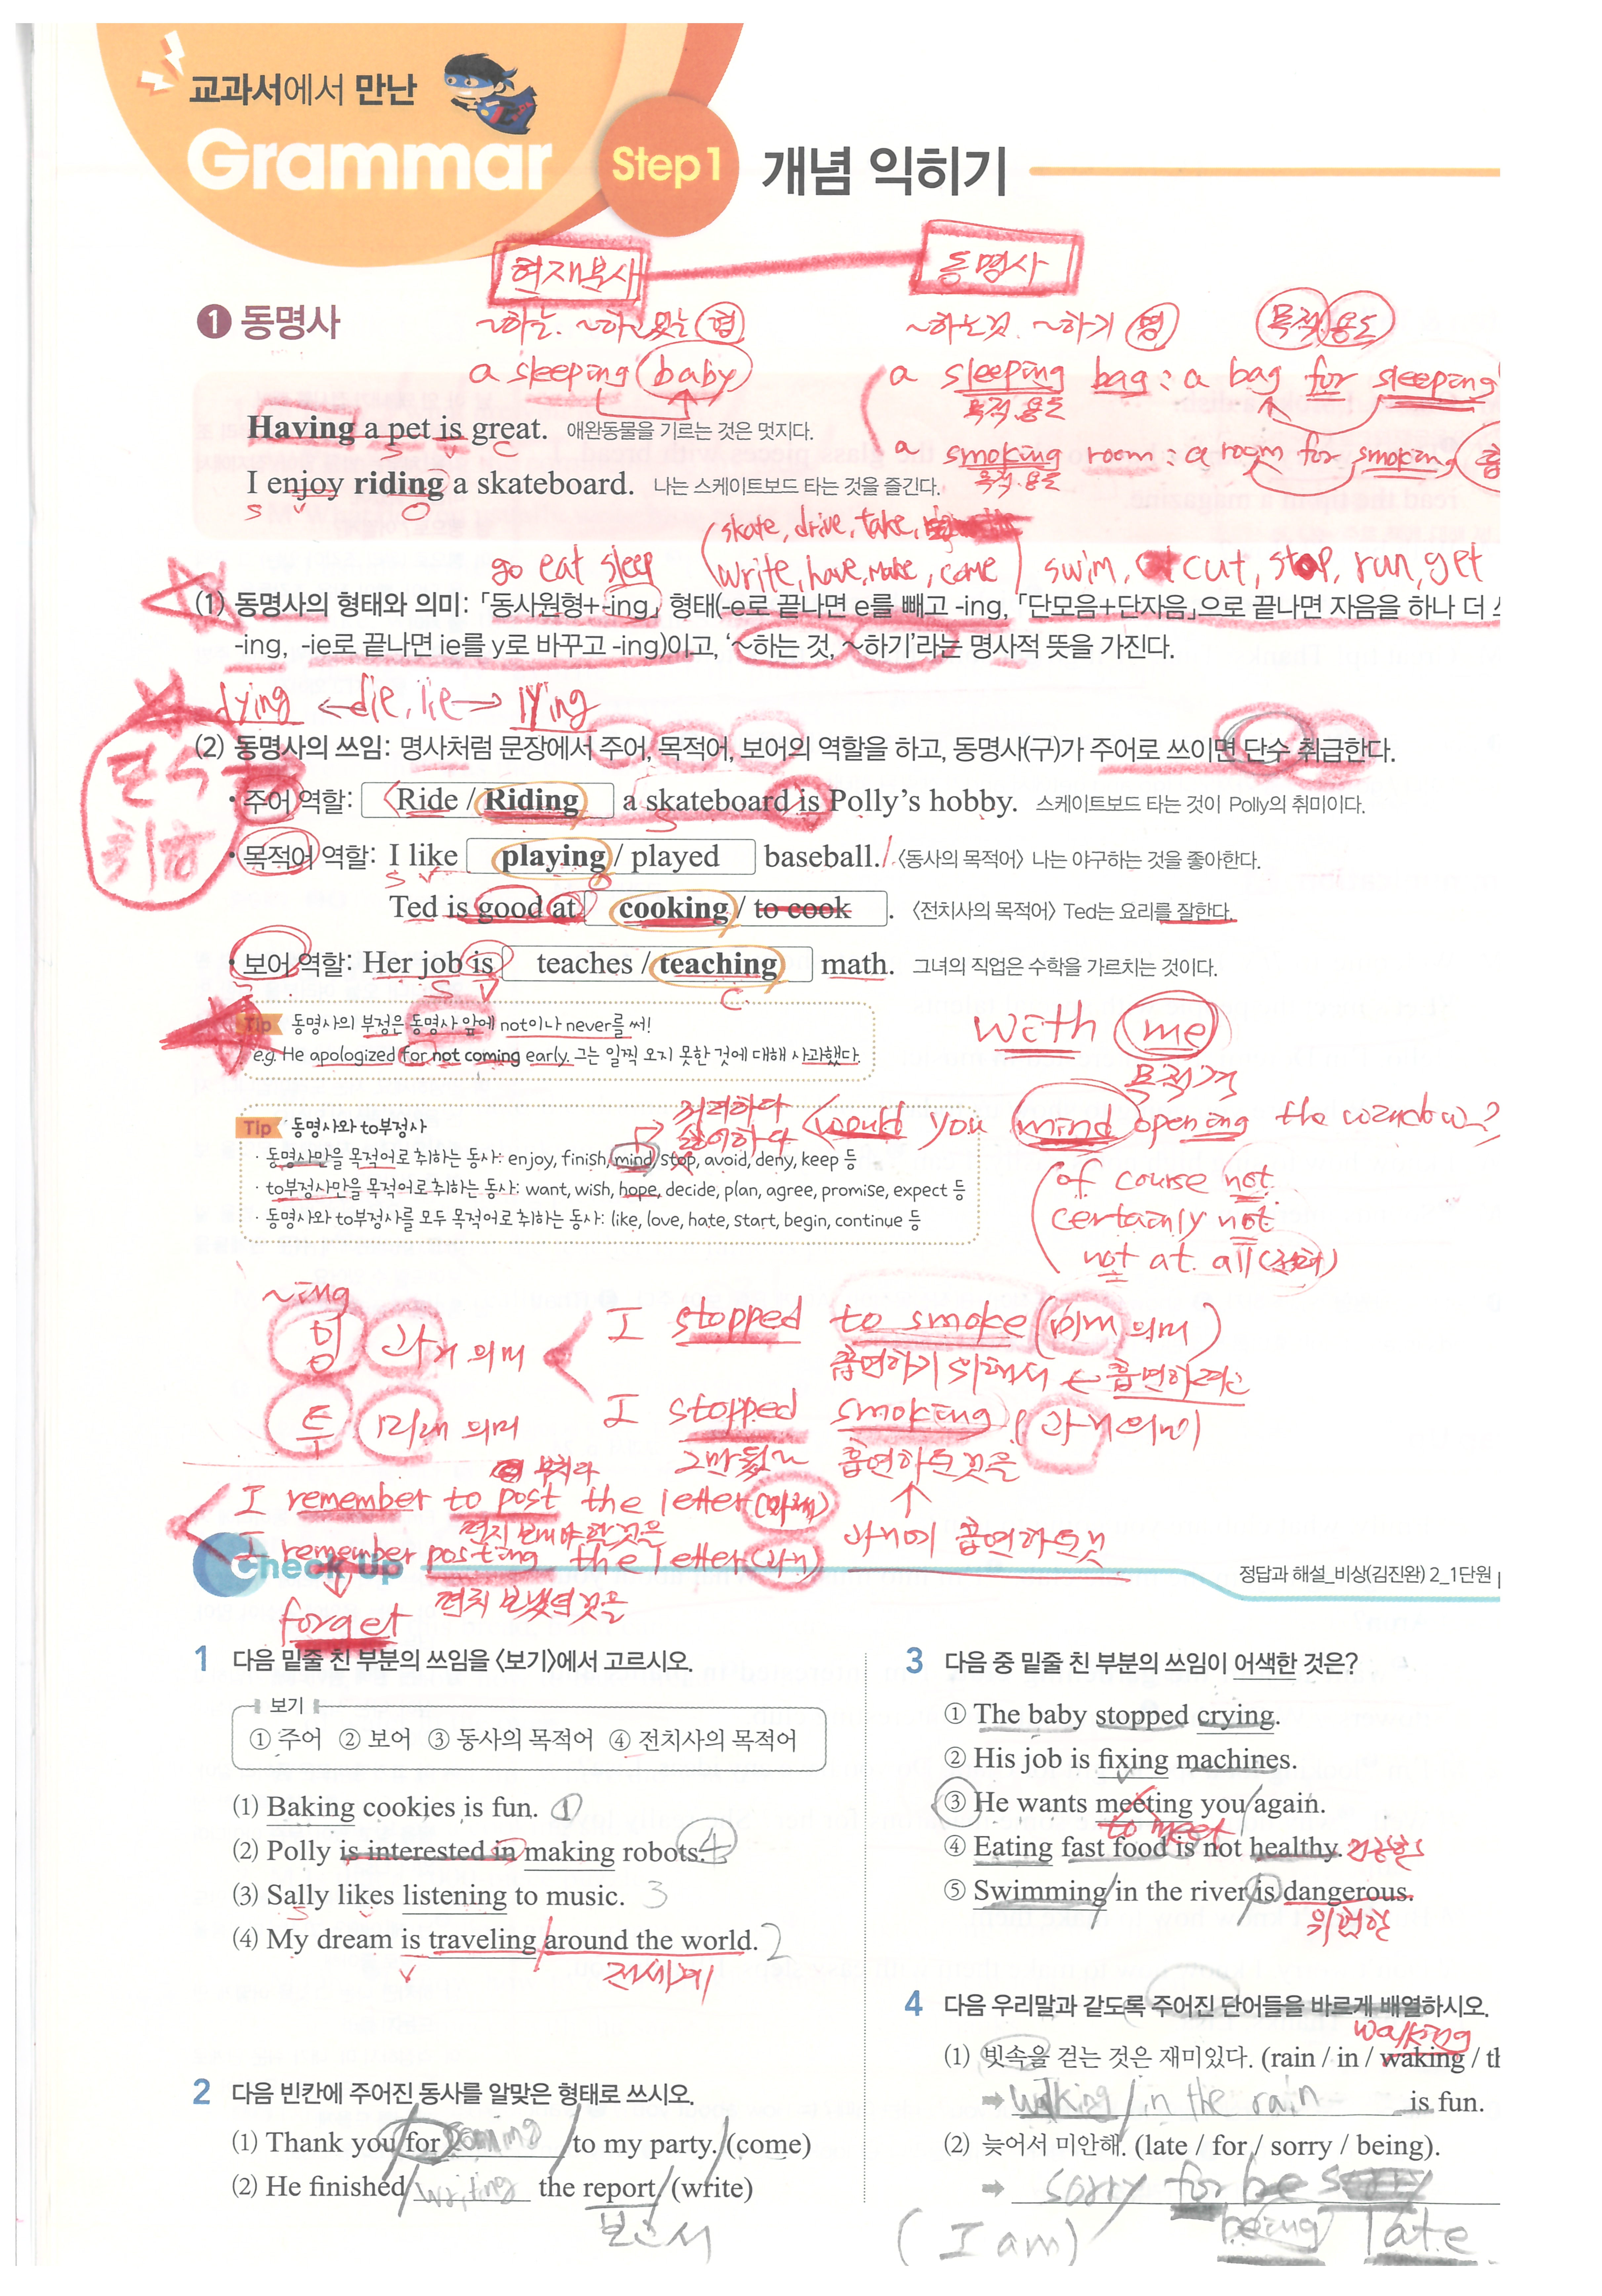 교과서에서 만난
Grammar
Step 1 개념 익히기
현재분사 동명사
❶ 동명사
~하는. ~하고 있는 형 ~하는것. ~하기 명 목적 용도
a sleeping baby a sleeping bag : a bag for sleeping
목적.용도
Having a pet is great. 애완동물을 기르는 것은 멋지다.
S V C
a smoking room : a room for smoking
목적.용도
I enjoy riding a skateboard. 나는 스케이트보드 타는 것을 즐긴다.
S V O
skate, drive, take,
go eat sleep write, have, make, come swim, cut, stop, run, get
(1) 동명사의 형태와 의미: 「동사원형+-ing」 형태(-e로 끝나면 e를 빼고 -ing, 「단모음+단자음」으로 끝나면 자음을 하나 더
-ing, -ie로 끝나면 ie를 y로 바꾸고 -ing)이고, ‘~하는 것, ~하기’라는 명사적 뜻을 가진다.
dying ← die, lie → lying
(2) 동명사의 쓰임: 명사처럼 문장에서 주어, 목적어, 보어의 역할을 하고, 동명사(구)가 주어로 쓰이면 단수 취급한다.
단수
취급
• 주어 역할: Ride / Riding a skateboard is Polly’s hobby. 스케이트보드 타는 것이 Polly의 취미이다.
S
• 목적어 역할: I like playing / played baseball. 〈동사의 목적어〉 나는 야구하는 것을 좋아한다.
S V O
Ted is good at cooking / to cook . 〈전치사의 목적어〉 Ted는 요리를 잘한다.
• 보어 역할: Her job is teaches / teaching math. 그녀의 직업은 수학을 가르치는 것이다.
S V C
Tip 동명사의 부정은 동명사 앞에 not이나 never를 써!
e.g. He apologized for not coming early. 그는 일찍 오지 못한 것에 대해 사과했다.
with me
목적격
Tip 동명사와 to부정사
꺼려하다
싫어하다
would you mind opening the window?
· 동명사만을 목적어로 취하는 동사: enjoy, finish, mind, stop, avoid, deny, keep 등
· to부정사만을 목적어로 취하는 동사: want, wish, hope, decide, plan, agree, promise, expect 등
· 동명사와 to부정사를 모두 목적어로 취하는 동사: like, love, hate, start, begin, continue 등
of course not
certainly not
not at all
~ing
밍 과거 의미
I stopped to smoke (미래 의미)
흡연하기 위해서 ← 흡연하려고
투 미래 의미
I stopped smoking (과거의미)
그만뒀다 흡연하는것을
I remember to post the letter (미래)
편지 보내야 할것을
과거에 흡연하는것
I remember posting the letter (과거)
편지 보냈던 것을
forget
Check Up
정답과 해설_비상(김진완) 2_1단원
1 다음 밑줄 친 부분의 쓰임을 〈보기〉에서 고르시오.
보기
① 주어 ② 보어 ③ 동사의 목적어 ④ 전치사의 목적어
(1) Baking cookies is fun. ①
(2) Polly is interested in making robots. 4
(3) Sally likes listening to music. 3
S V
(4) My dream is traveling around the world. 2
V 전세계
2 다음 빈칸에 주어진 동사를 알맞은 형태로 쓰시오.
(1) Thank you for coming to my party. (come)
(2) He finished writing the report. (write)
보고서
3 다음 중 밑줄 친 부분의 쓰임이 어색한 것은?
① The baby stopped crying.
② His job is fixing machines.
③ He wants meeting you again.
to meet
④ Eating fast food is not healthy. 건강한
⑤ Swimming in the river is dangerous.
위험한
4 다음 우리말과 같도록 주어진 단어들을 바르게 배열하시오.
walking
(1) 빗속을 걷는 것은 재미있다. (rain / in / waking / th
➡ walking in the rain is fun.
(2) 늦어서 미안해. (late / for / sorry / being).
➡ sorry for be
(I am) being late